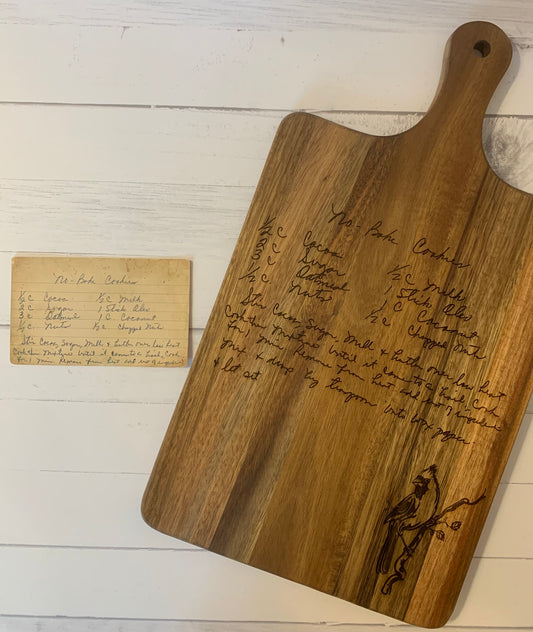 "No-Bake Cookies
½ C Cocoa ½ C Milk
2 C Sugar 1 Stick Oleo
3 C Oatmeal 1 C Cocoanut
½ C Nuts ½ C Chopped Nuts
Stir Cocoa, Sugar, Milk & butter over low heat
Cook then mixture until it comes to a boil, Cook
for 1 min Remove from heat add
"No-Bake Cookies
½ C Cocoa ½ C Milk
2 C Sugar 1 Stick Oleo
3 C Oatmeal 1 C Cocoanut
½ C Nuts ½ C Chopped Nuts
Stir Cocoa, Sugar, Milk & butter over low heat
Cook then mixture until it comes to a boil, Cook
for 1 min Remove from heat add
mix & drop by teaspoon onto wax paper
& let set